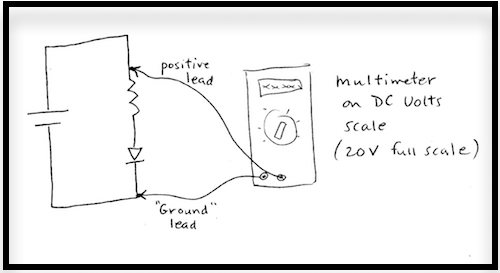 positive
lead
xxxxx
multimeter
on DC Volts
scale
(20V full scale)
"Ground"
lead